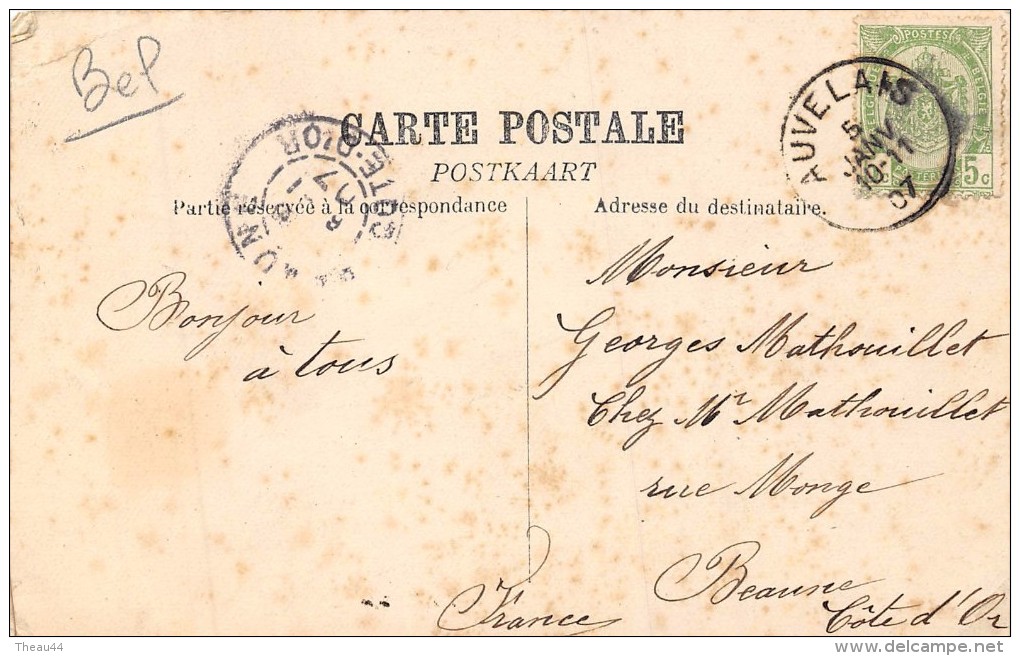 BeP
CARTE POSTALE
POSTKAART
Partie réservée à la correspondance
Adresse du destinataire.
POSTES
5 c
AUVELAIS
5
JANV
10-11
07
CÔTE-D'OR
Bonjour
à tous
Monsieur
Georges Mathouillet
Chez Mr Mathouillet
rue Monge
Beaune
Côte d'Or
France
Theau44
delcampe.net